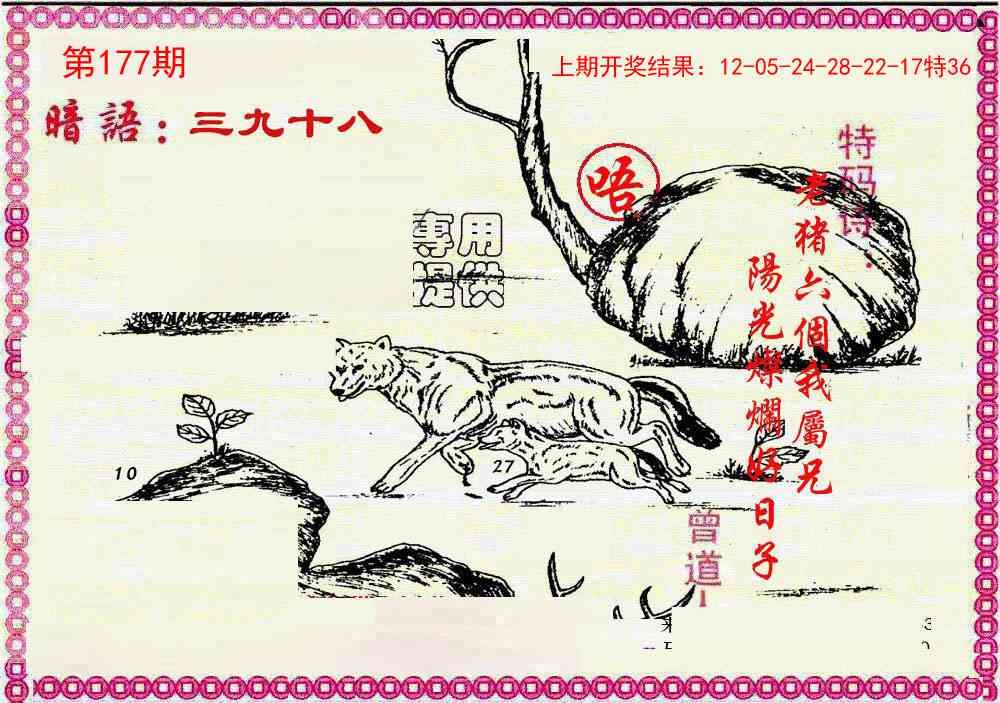 第177期
上期开奖结果：12-05-24-28-22-17特36
暗語：三九十八
唔
特码诗：
老猪六個我屬兄
陽光燦爛好日子
專用
提供
10
27
曾道